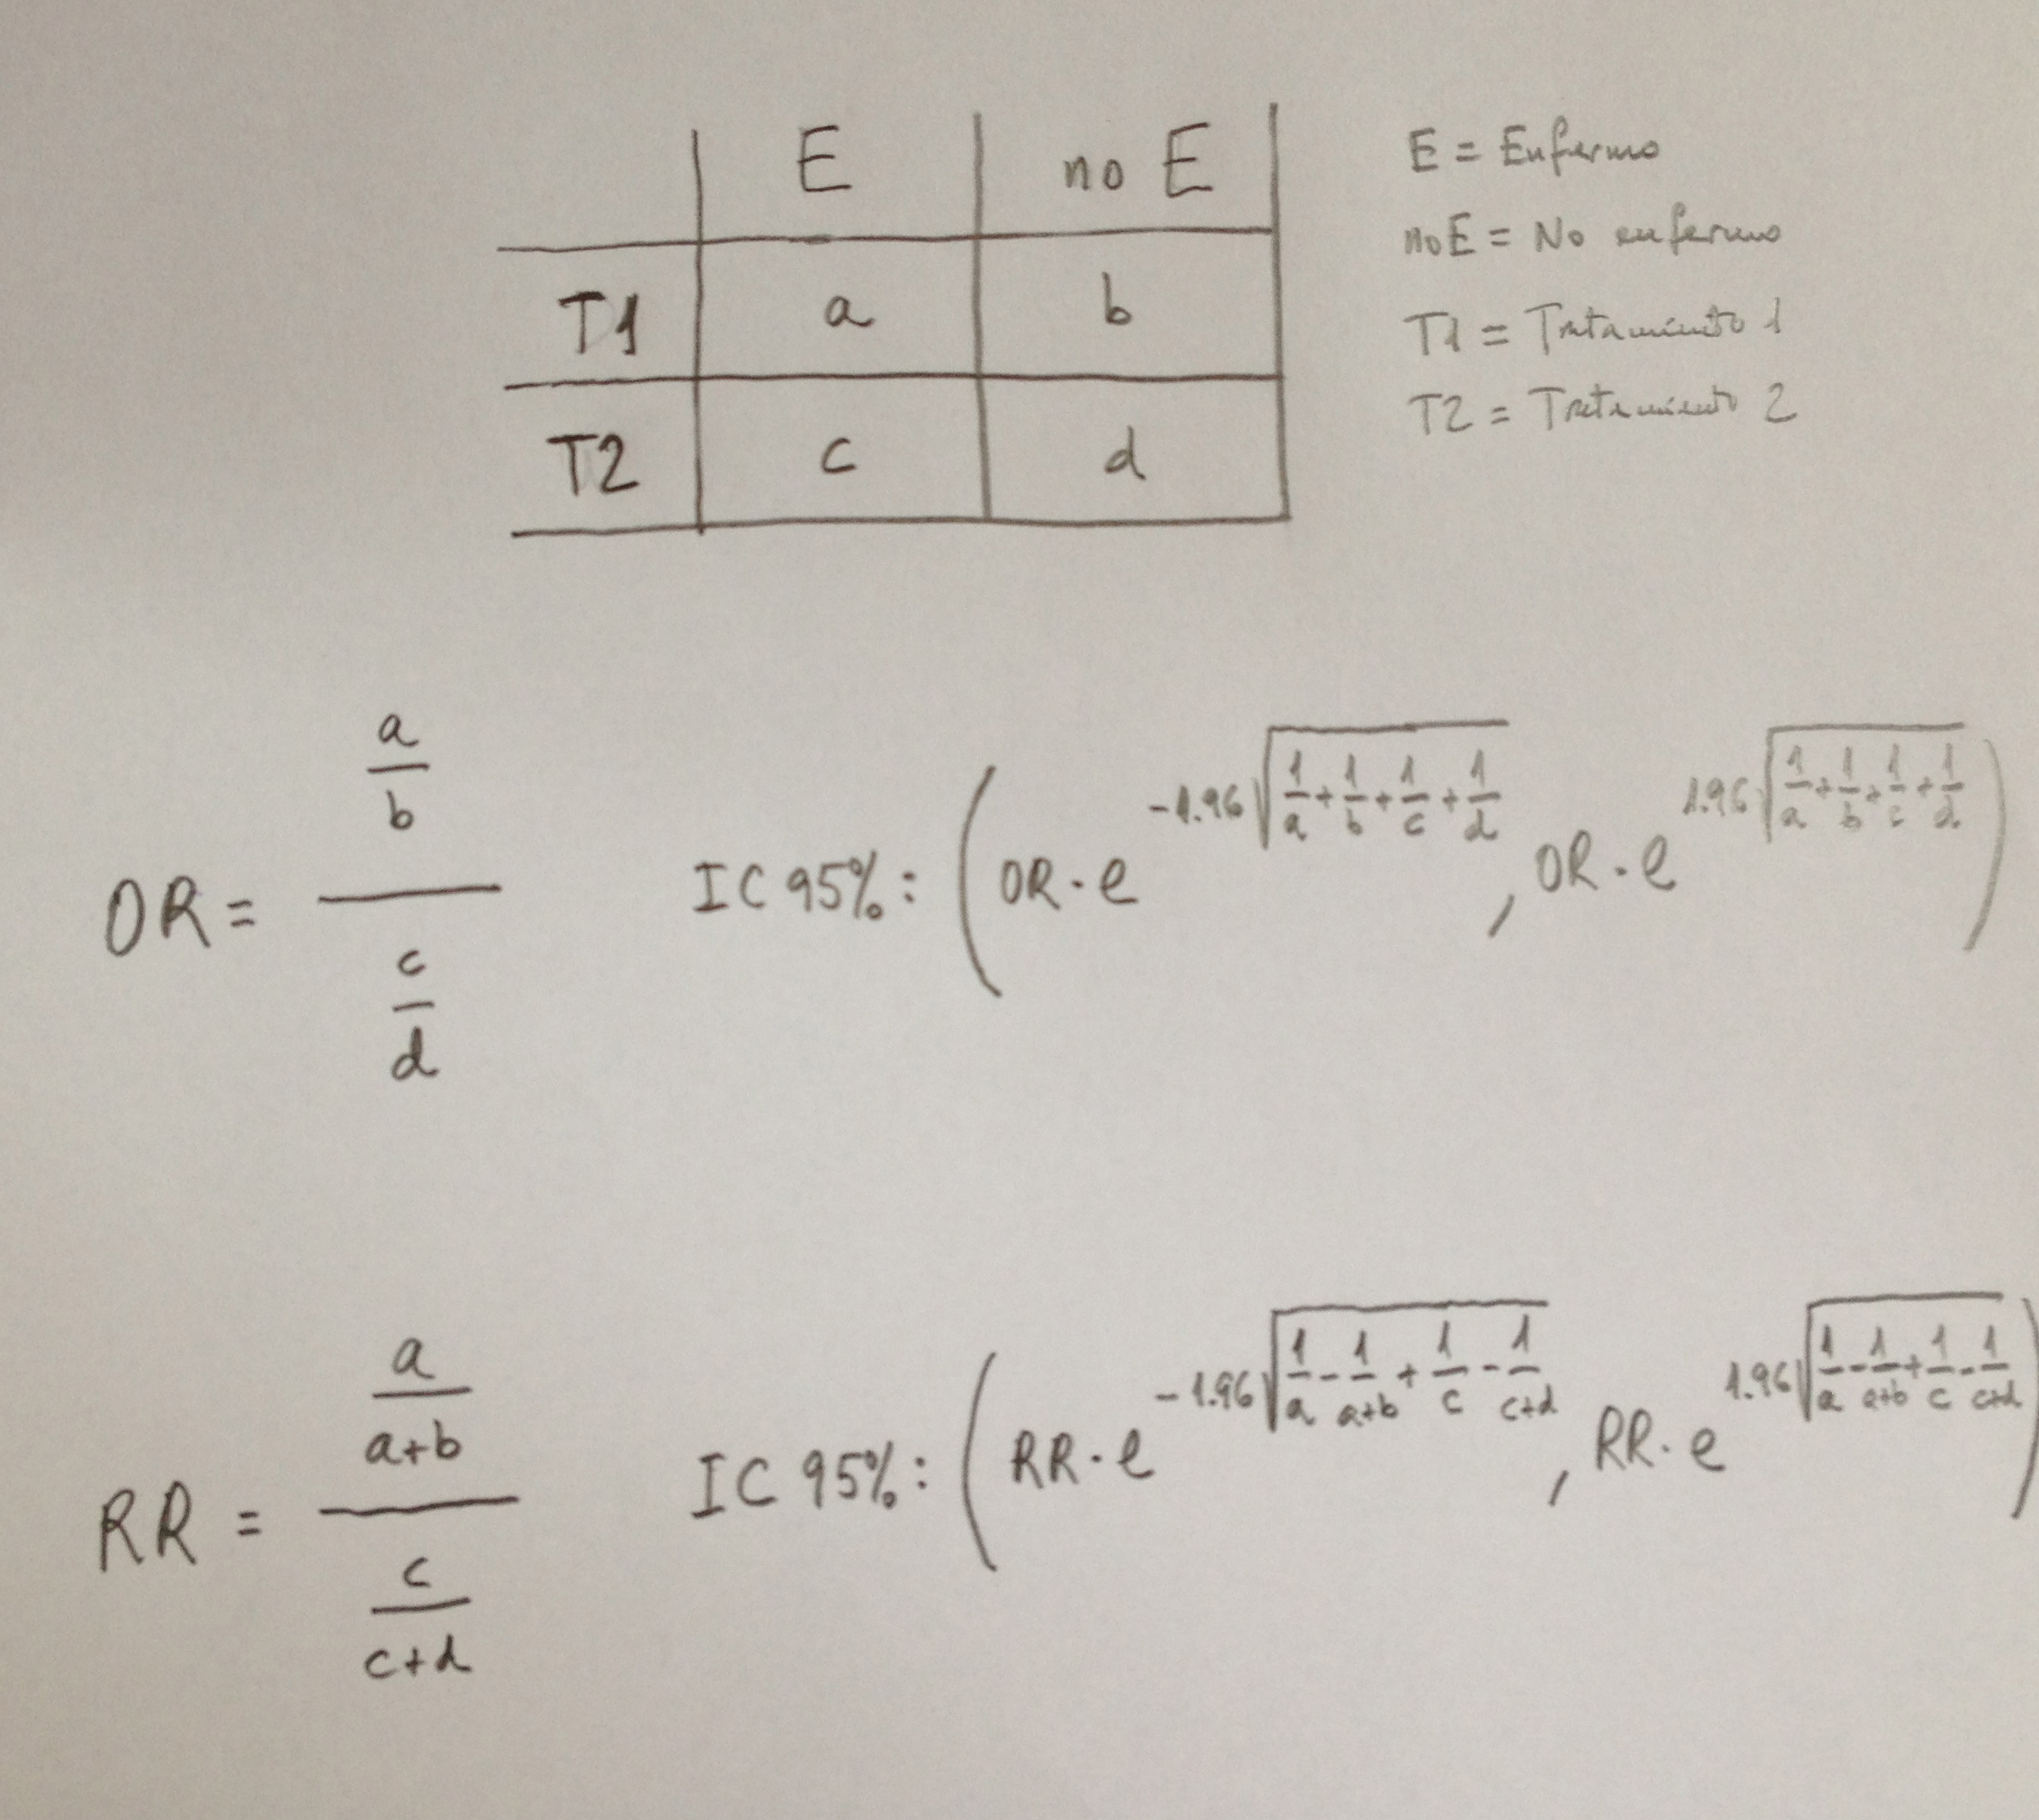 E no E
T1 a b
T2 c d
E = Enfermo
noE = No enfermo
T1 = Tratamiento 1
T2 = Tratamiento 2
OR = (a/b)/(c/d) IC 95%: (OR·e^(-1.96√(1/a+1/b+1/c+1/d)), OR·e^(1.96√(1/a+1/b+1/c+1/d)))
RR = (a/(a+b))/(c/(c+d)) IC 95%: (RR·e^(-1.96√(1/a-1/(a+b)+1/c-1/(c+d))), RR·e^(1.96√(1/a-1/(a+b)+1/c-1/(c+d))))